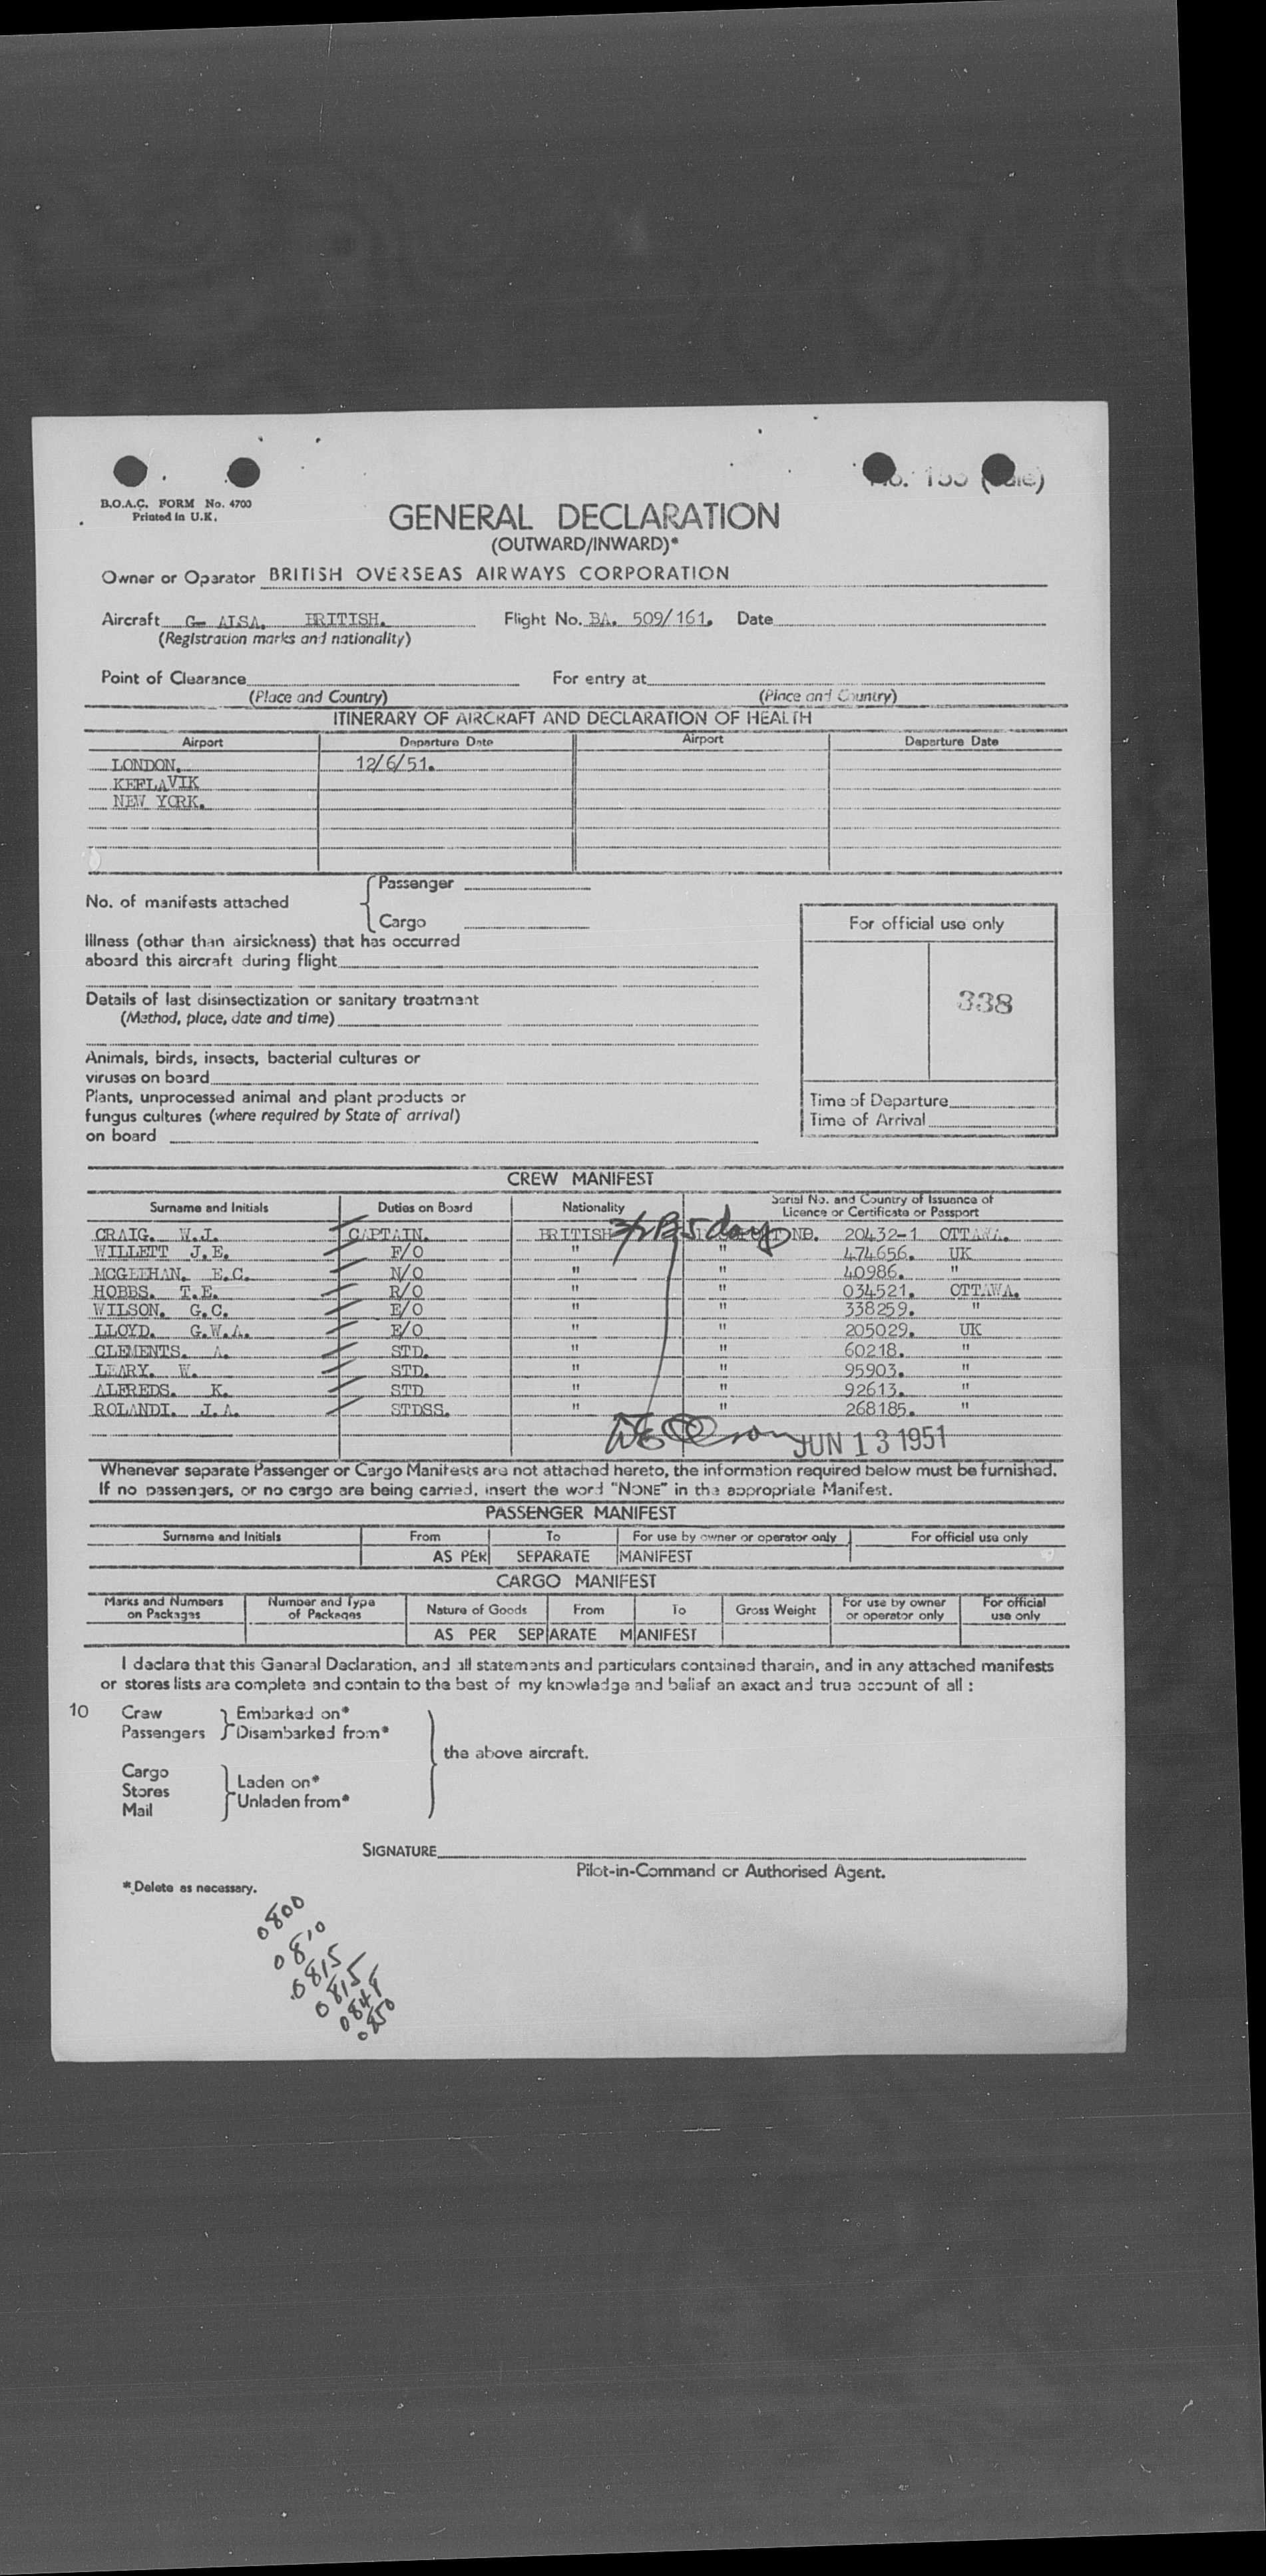 B.O.A.C. FORM No. 4700
Printed in U.K.
GENERAL DECLARATION
(OUTWARD/INWARD)*
Owner or Operator BRITISH OVERSEAS AIRWAYS CORPORATION
Aircraft G- ALSA. BRITISH. Flight No. BA. 509/161. Date
(Registration marks and nationality)
Point of Clearance For entry at
(Place and Country) (Place and Country)
ITINERARY OF AIRCRAFT AND DECLARATION OF HEALTH
Airport Departure Date Airport Departure Date
LONDON. 12/6/51.
KEFLAVIK
NEW YORK.
No. of manifests attached
Passenger
Cargo
For official use only
Illness (other than airsickness) that has occurred
aboard this aircraft during flight
Details of last disinsectization or sanitary treatment
338
(Method, place, date and time)
Animals, birds, insects, bacterial cultures or
viruses on board
Plants, unprocessed animal and plant products or
fungus cultures (where required by State of arrival)
on board
Time of Departure
Time of Arrival
CREW MANIFEST
Surname and Initials Duties on Board Nationality Serial No. and Country of Issuance of
Licence or Certificate or Passport
CRAIG. W.J. CAPTAIN. BRITISH 5 days NO. 20432-1 OTTAWA.
WILLETT J.E. F/O " " 474656. UK
MCGEEHAN. E.C. N/O " " 40986. "
HOBBS. T.E. R/O " " 034521. OTTAWA.
WILSON. G.C. E/O " " 338259. "
LLOYD. G.W.A. E/O " " 205029. UK
CLEMENTS. A. STD. " " 60218. "
LEARY. W. STD. " " 95903. "
ALFREDS. K. STD " " 92613. "
ROLANDI. J.A. STDSS. " " 268185. "
JUN 13 1951
Whenever separate Passenger or Cargo Manifests are not attached hereto, the information required below must be furnished.
If no passengers, or no cargo are being carried, insert the word "NONE" in the appropriate Manifest.
PASSENGER MANIFEST
Surname and Initials From To For use by owner or operator only For official use only
AS PER SEPARATE MANIFEST
CARGO MANIFEST
Marks and Numbers on Packages Number and Type of Packages Nature of Goods From To Gross Weight For use by owner or operator only For official use only
AS PER SEPARATE MANIFEST
I declare that this General Declaration, and all statements and particulars contained therein, and in any attached manifests
or stores lists are complete and contain to the best of my knowledge and belief an exact and true account of all :
10 Crew Embarked on*
Passengers Disembarked from*
the above aircraft.
Cargo
Stores Laden on*
Mail Unladen from*
SIGNATURE
Pilot-in-Command or Authorised Agent.
* Delete as necessary.
0800
0810
0815
0815
0848
0850